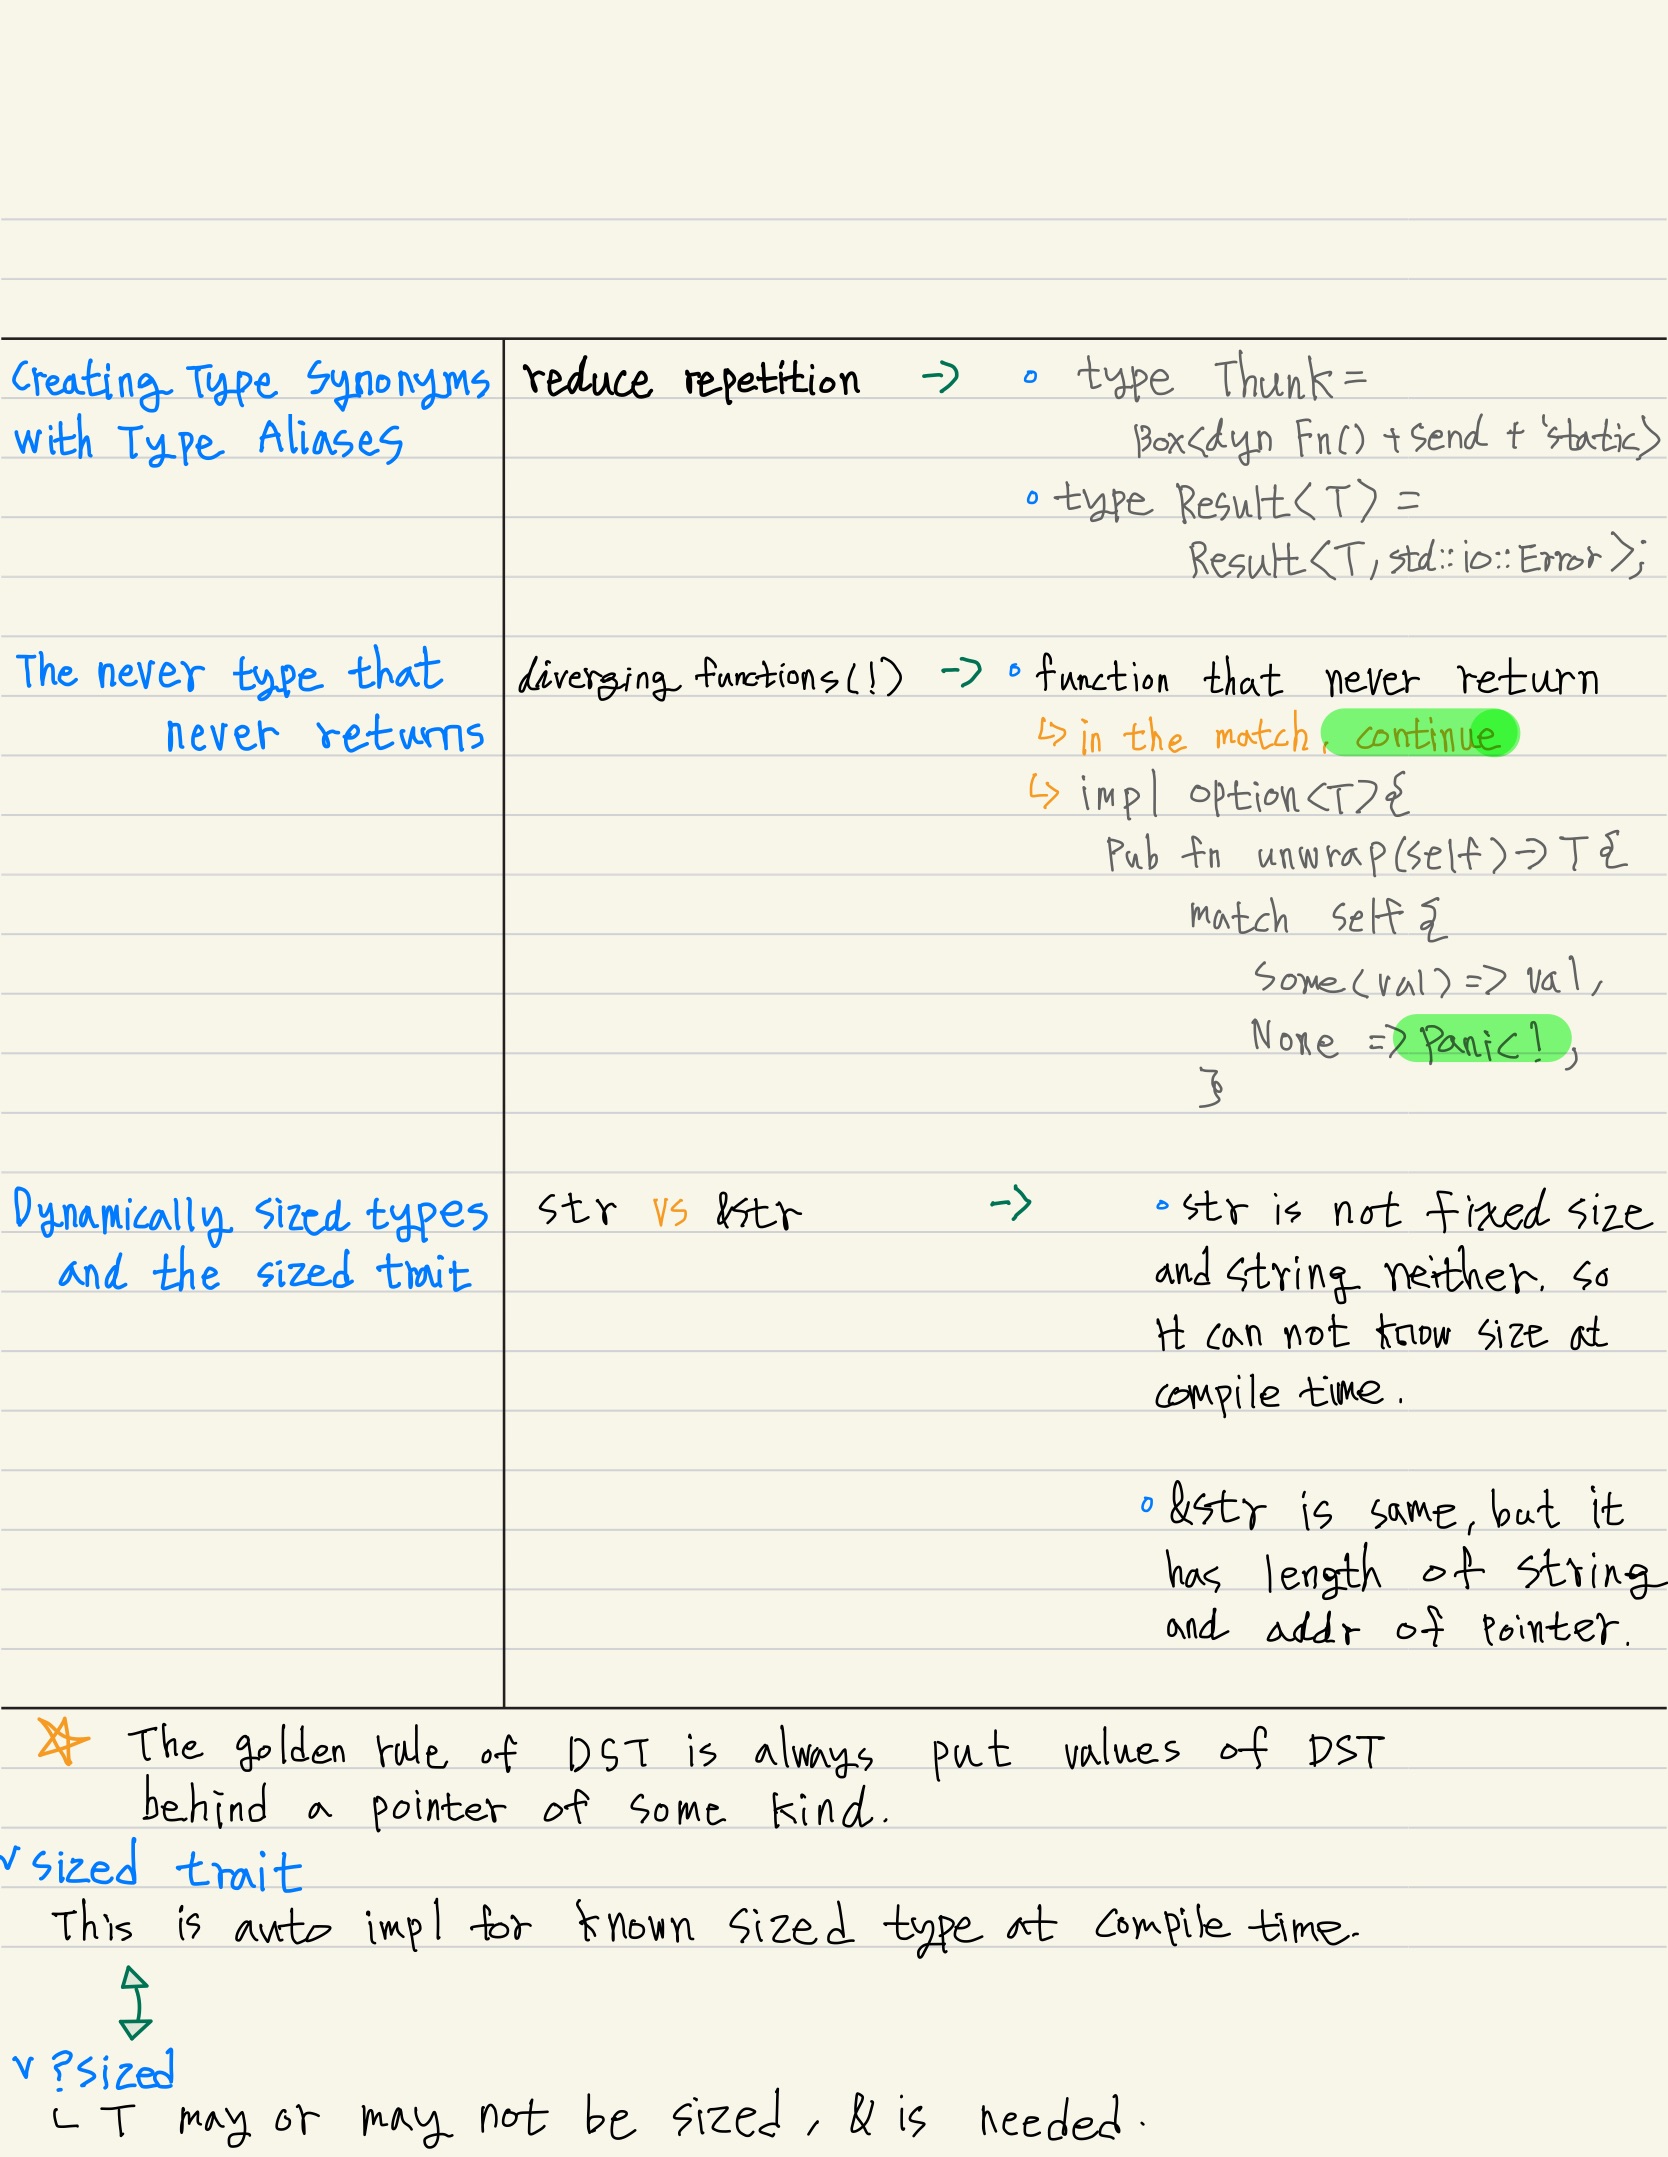 Creating Type Synonyms
with Type Aliases
reduce repetition -> ∘ type Thunk =
Box<dyn Fn() + send + 'static>
∘ type Result<T> =
Result<T, std::io::Error>;
The never type that
never returns
diverging functions(!) -> ∘ function that never return
↳ in the match, continue
↳ impl option<T>{
Pub fn unwrap(self) -> T {
match self {
Some(val) => val,
None => Panic!,
}
Dynamically sized types
and the sized trait
str vs &str -> ∘ str is not fixed size
and string neither. so
it can not know size at
compile time.
∘ &str is same, but it
has length of string
and addr of pointer.
☆ The golden rule of DST is always put values of DST
behind a pointer of some kind.
v sized trait
This is auto impl for known sized type at compile time.
↕
v ?sized
ㄴ T may or may not be sized, & is needed.